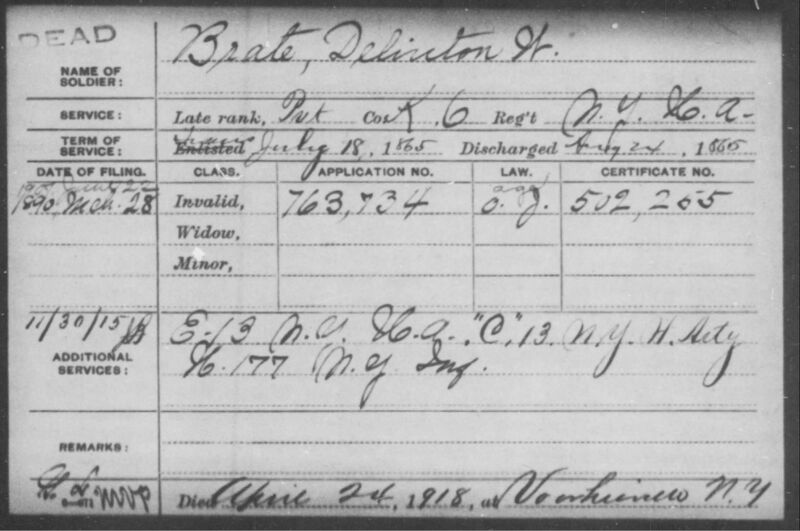 DEAD
Brate, Delinton W.
NAME OF SOLDIER:
SERVICE: Late rank, Pvt Co. K, 6 Reg't N.Y. H.A.
TERM OF SERVICE: Enlisted July 18, 1865 Discharged Aug 24, 1865
DATE OF FILING. CLASS. APPLICATION NO. LAW. CERTIFICATE NO.
June 22
1890, Mch. 28 Invalid, 763,734 O. J. 502,255
Widow,
Minor,
11/30/15 E-13 N.Y. H.A. "C", 13. N.Y. H. Arty
ADDITIONAL SERVICES: H. 177 N.Y. Inf.
REMARKS:
MVP Died April 24, 1918, at Voorheesville N.Y